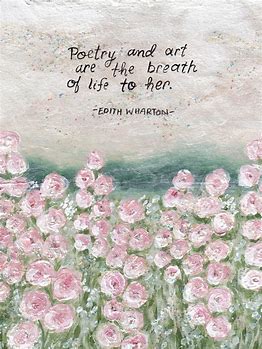 Poetry and art
are the breath
of life to her.
-EDITH WHARTON-